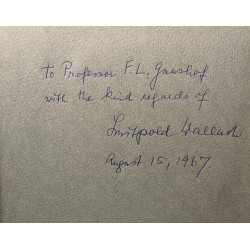 to Professor F. L. Ganshof
with the kind regards of
Luitpold Wallach
August 15, 1967